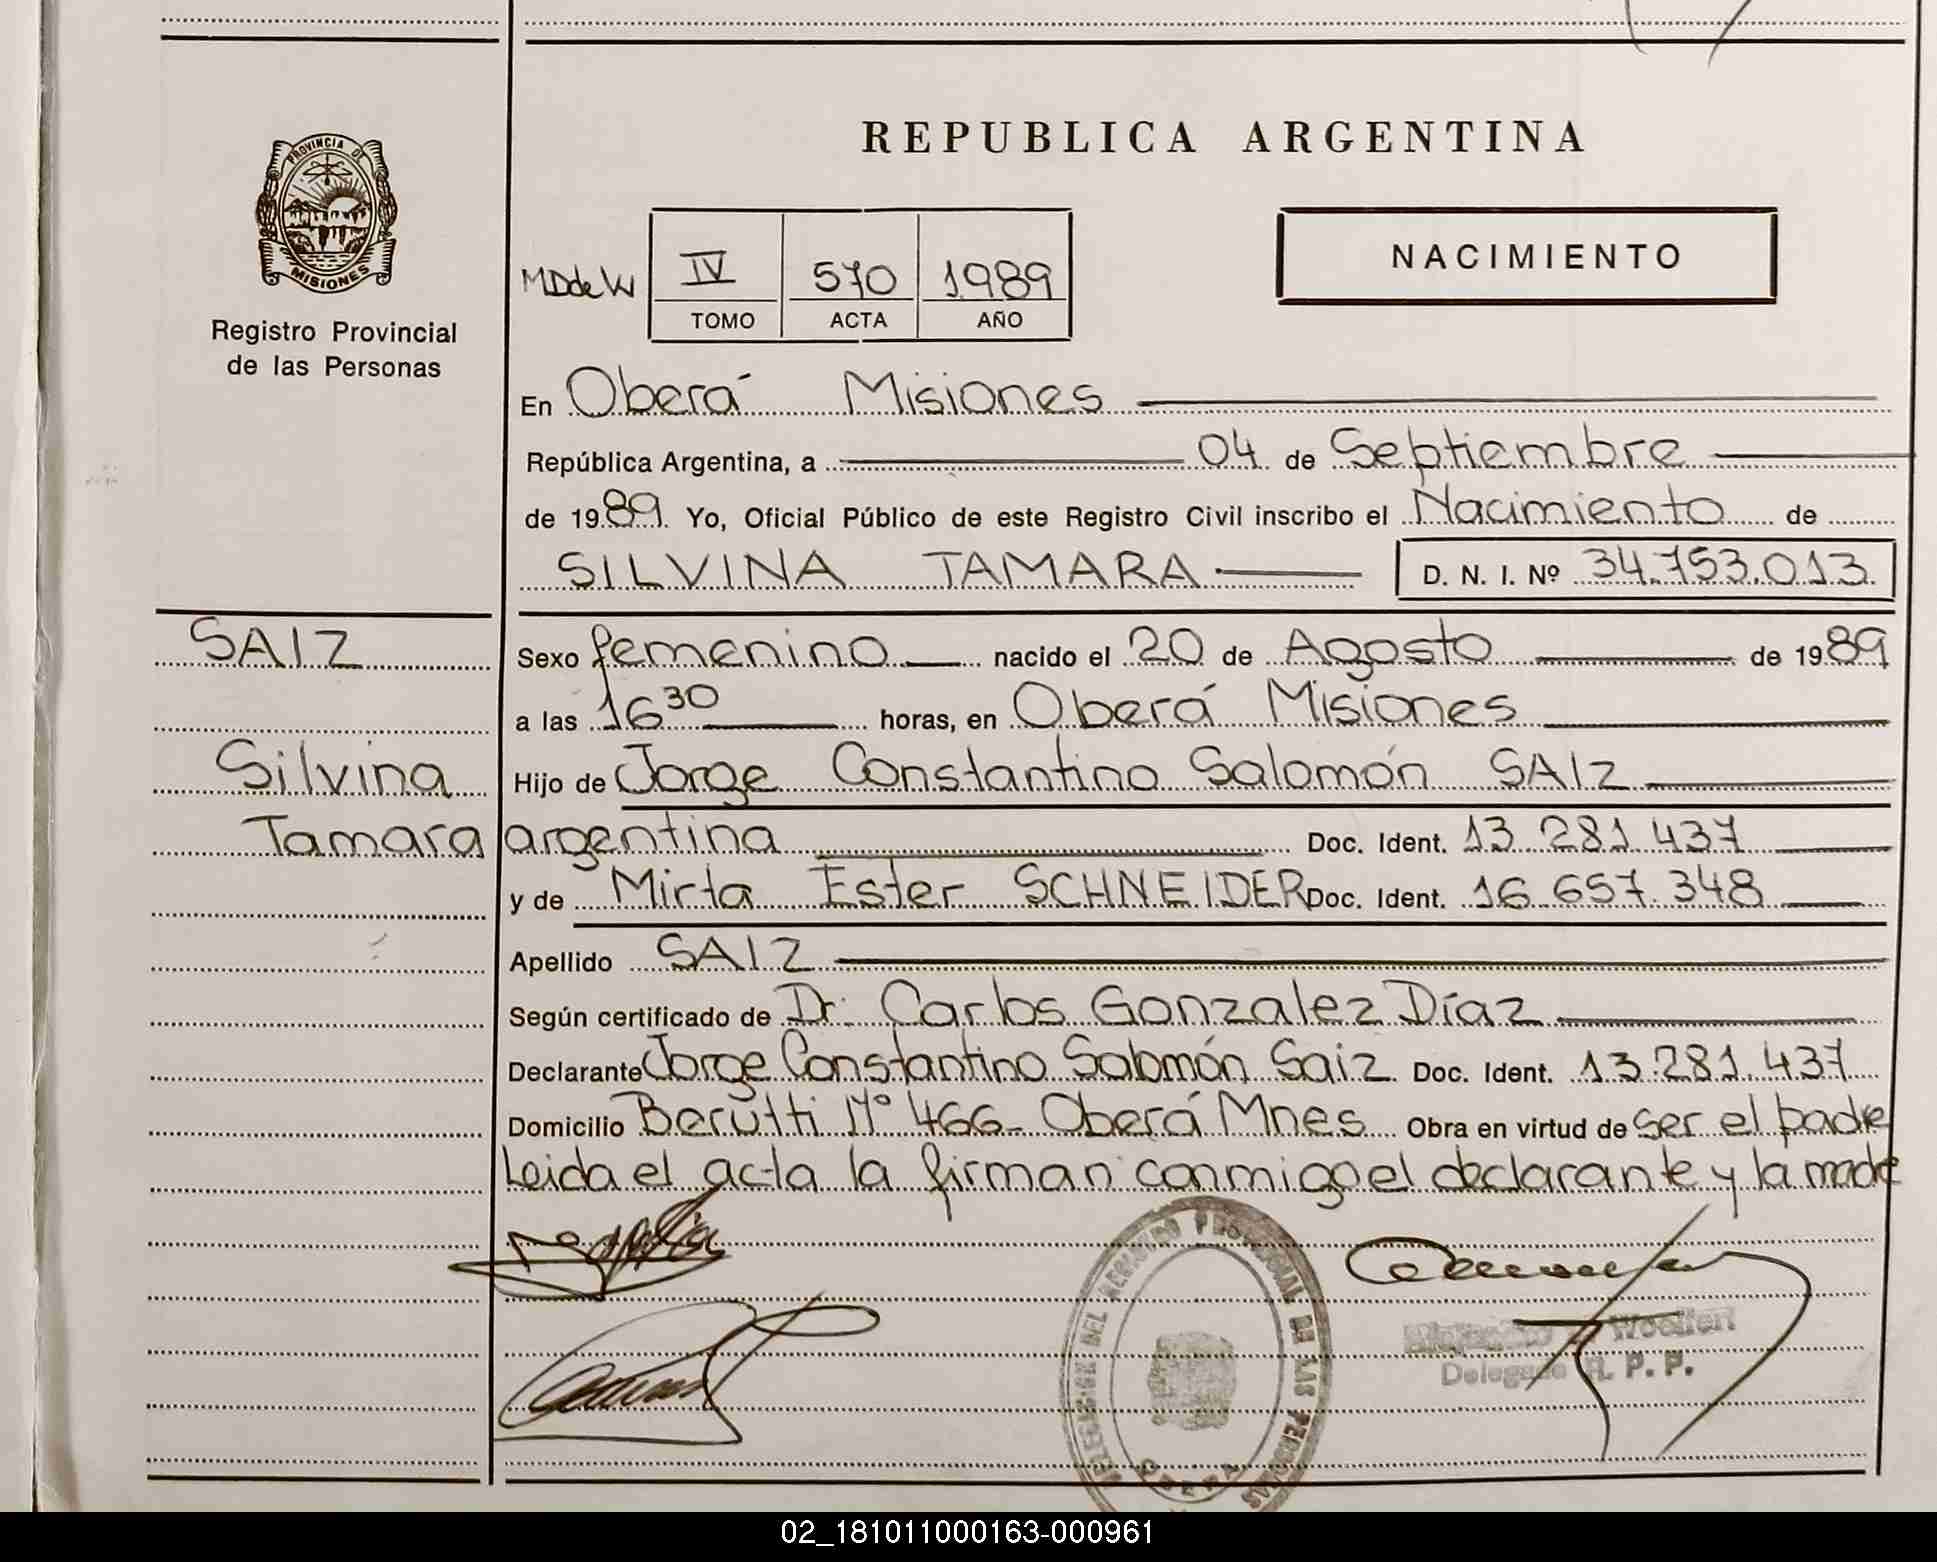 REPUBLICA ARGENTINA
PROVINCIA DE
MISIONES
Registro Provincial
de las Personas
NACIMIENTO
MDdeW IV 570 1989
TOMO ACTA AÑO
En Oberá Misiones
República Argentina, a 04 de Septiembre
de 1989 Yo, Oficial Público de este Registro Civil inscribo el Nacimiento de
SILVINA TAMARA D. N. I. Nº 34.753.013
SAIZ
Silvina
Tamara
Sexo femenino nacido el 20 de Agosto de 1989
a las 16 30 horas, en Oberá Misiones
Hijo de Jorge Constantino Salomón SAIZ
argentina Doc. Ident. 13.281.437
y de Mirta Ester SCHNEIDER Doc. Ident. 16.657.348
Apellido SAIZ
Según certificado de Dr. Carlos Gonzalez Díaz
Declarante Jorge Constantino Salomón Saiz Doc. Ident. 13.281.437
Domicilio Berutti Nº 466- Oberá Mnes Obra en virtud de ser el padre
Leida el acta la firman conmigo el declarante y la madre
DELEGACION DEL REGISTRO PROVINCIAL DE LAS PERSONAS
OBERA
Woollen
Delegado R. P. P.
02_181011000163-000961